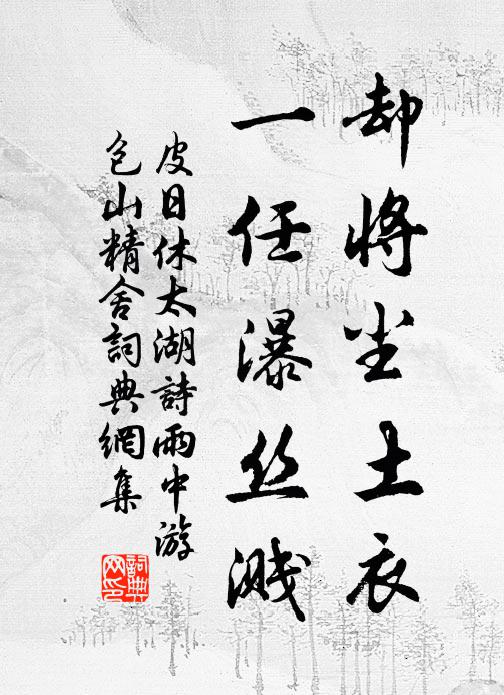 却将尘土衣
一任瀑丝溅
皮日休太湖詩雨中游
包山精舍詞典網集
詞典
网印